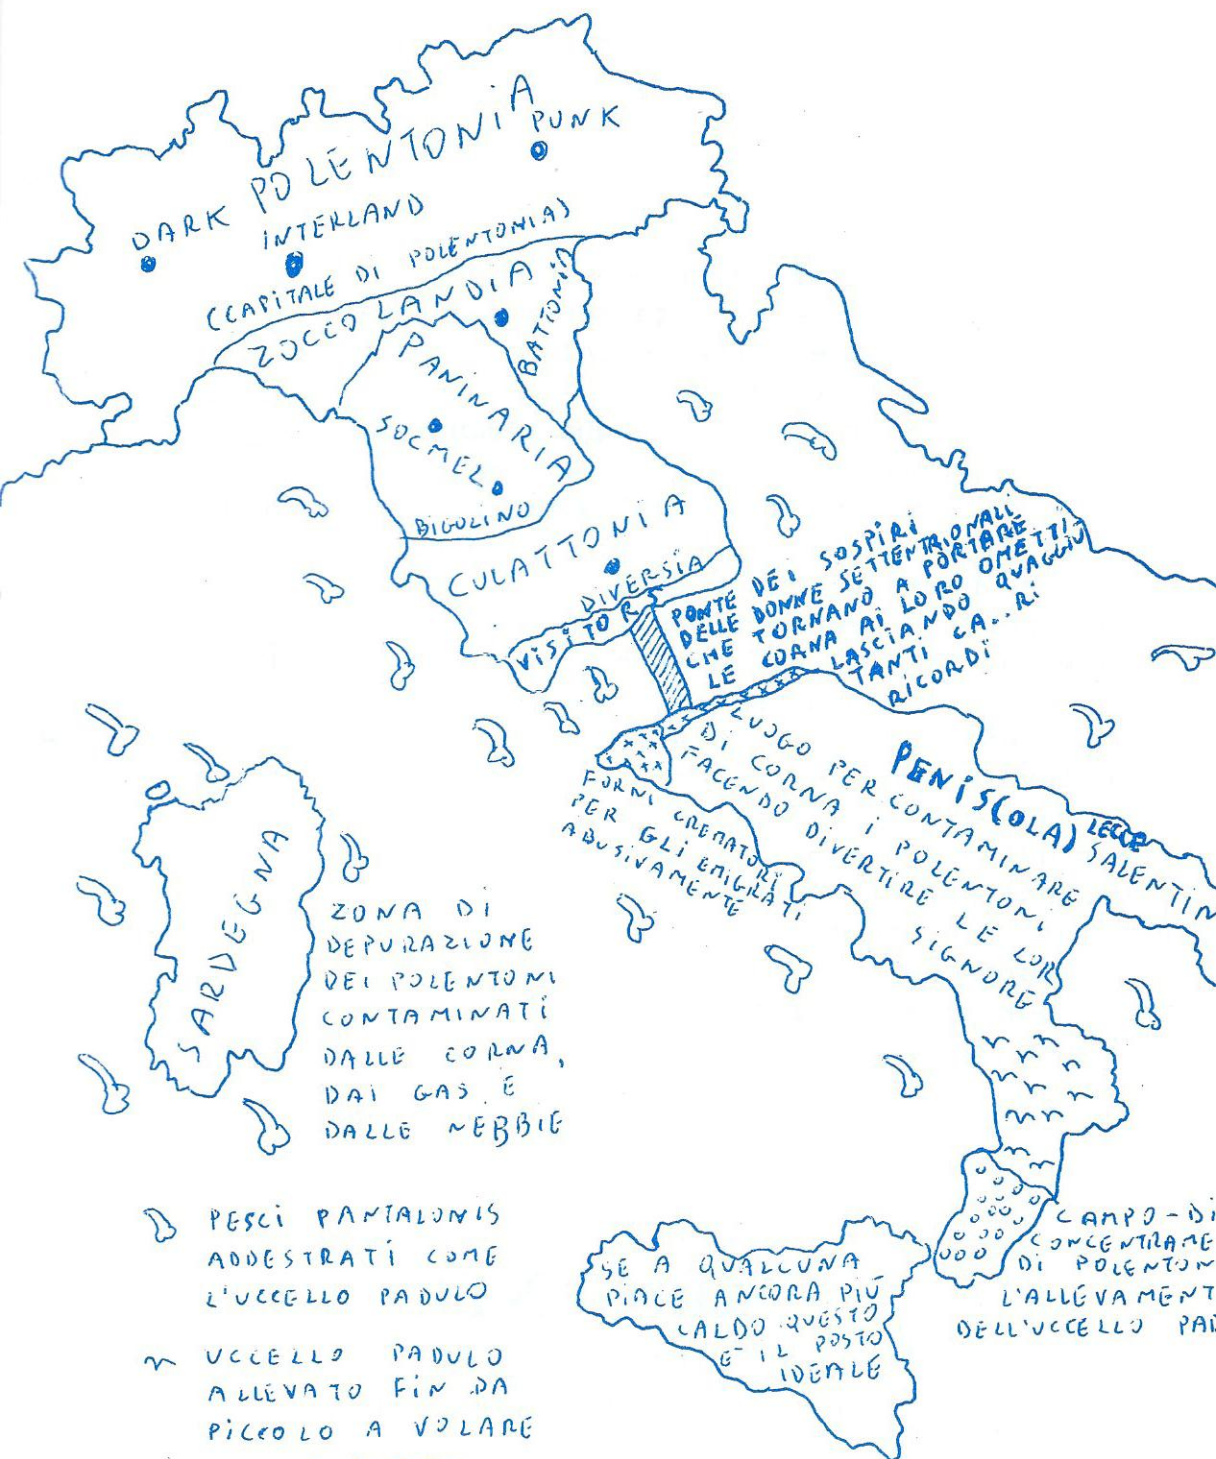 POLENTONIA
PUNK
DARK
INTERLAND
(CAPITALE DI POLENTONIA)
ZOCCOLANDIA
BATTONIA
PANINARIA
SOCMEL
BIGOLINO
CULATTONIA
DIVERSIA
VISITORS
PONTE DEI SOSPIRI
DELLE DONNE SETTENTRIONALI
CHE TORNANO A PORTARE
LE CORNA AI LORO OMETTI
LASCIANDO QUAGGIÙ
TANTI CA..RI
RICORDI
PENIS(OLA)
LECCE
SALENTIN
LUOGO PER CONTAMINARE
DI CORNA I POLENTONI
FACENDO DIVERTIRE LE LOR
SIGNORE
FORNI CREMATORI
PER GLI EMIGRATI
ABUSIVAMENTE
SARDEGNA
ZONA DI
DEPURAZIONE
DEI POLENTONI
CONTAMINATI
DALLE CORNA,
DAI GAS E
DALLE NEBBIE
PESCI PANTALONIS
ADDESTRATI COME
L'UCCELLO PADULO
UCCELLO PADULO
ALLEVATO FIN DA
PICCOLO A VOLARE
SE A QUALCUNA
PIACE ANCORA PIÙ
CALDO QUESTO
E' IL POSTO
IDEALE
CAMPO-DI
CONCENTRAME
DI POLENTON
L'ALLEVAMENT
DELL'UCCELLO PAD